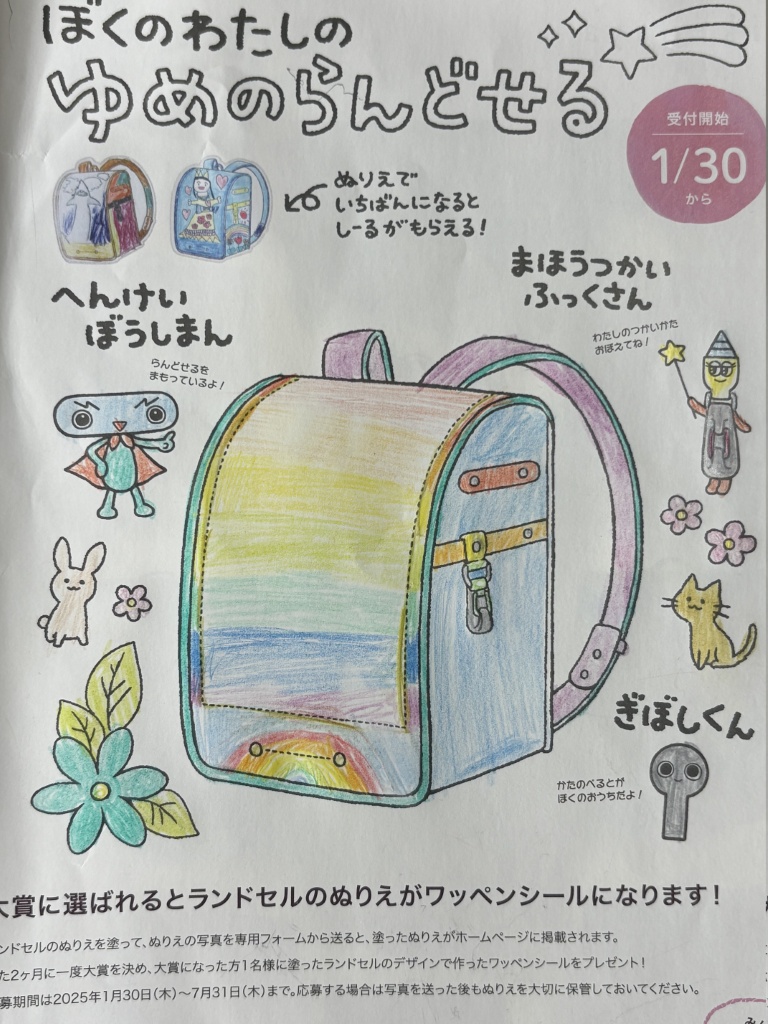 ぼくのわたしの
ゆめのらんどせる
受付開始
1/30
から
ぬりえで
いちばんになると
しーるがもらえる!
へんけい
ぼうしまん
らんどせるを
まもっているよ!
まほうつかい
ふっくさん
わたしのつかいかた
おぼえてね!
ぎぼしくん
かたのべるとが
ぼくのおうちだよ!
大賞に選ばれるとランドセルのぬりえがワッペンシールになります!
ンドセルのぬりえを塗って、ぬりえの写真を専用フォームから送ると、塗ったぬりえがホームページに掲載されます。
た2ヶ月に一度大賞を決め、大賞になった方1名様に塗ったランドセルのデザインで作ったワッペンシールをプレゼント!
募期間は2025年1月30日(木)〜7月31日(木)まで。応募する場合は写真を送った後もぬりえを大切に保管しておいてください。